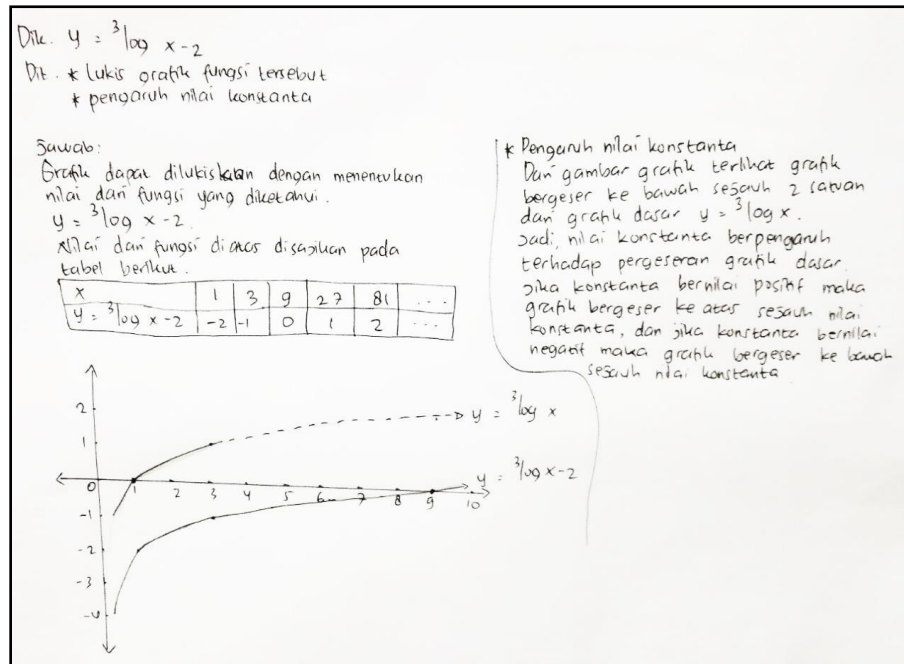 Dik. y = ³log x-2
Dit. * lukis grafik fungsi tersebut
* pengaruh nilai konstanta
Jawab:
Grafik dapat dilukiskan dengan menentukan
nilai dari fungsi yang diketahui.
y = ³log x-2.
Nilai dari fungsi diatas disajikan pada
tabel berikut.
x 1 3 9 27 81 ...
y = ³log x-2 -2 -1 0 1 2 ...
* Pengaruh nilai konstanta
Dari gambar grafik terlihat grafik
bergeser ke bawah sejauh 2 satuan
dari grafik dasar y = ³log x.
Jadi, nilai konstanta berpengaruh
terhadap pergeseran grafik dasar.
Jika konstanta bernilai positif maka
grafik bergeser ke atas sejauh nilai
konstanta, dan jika konstanta bernilai
negatif maka grafik bergeser ke bawah
sejauh nilai konstanta
2
1
0 1 2 3 4 5 6 7 8 9 10
-1
-2
-3
-4
y = ³log x
y = ³log x-2